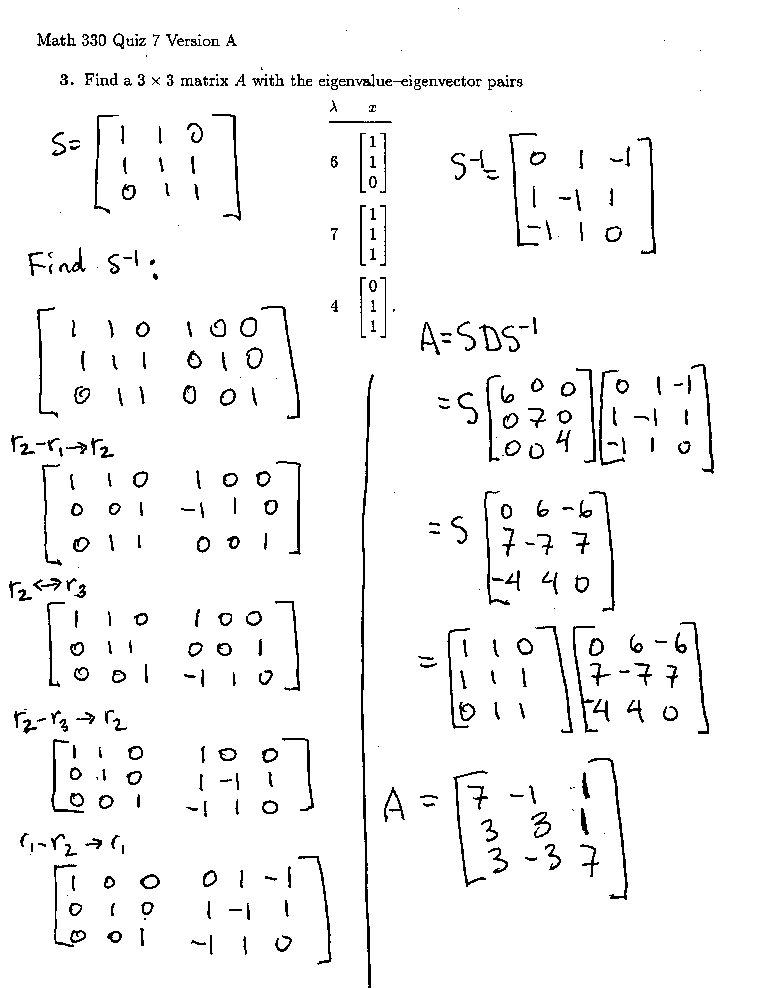 Math 330 Quiz 7 Version A
3. Find a 3 × 3 matrix A with the eigenvalue–eigenvector pairs
λ x
6 [1 1 0]
7 [1 1 1]
4 [0 1 1].
S= [1 1 0
1 1 1
0 1 1]
Find S-1:
[1 1 0 1 0 0
1 1 1 0 1 0
0 1 1 0 0 1]
r2-r1→r2
[1 1 0 1 0 0
0 0 1 -1 1 0
0 1 1 0 0 1]
r2↔r3
[1 1 0 1 0 0
0 1 1 0 0 1
0 0 1 -1 1 0]
r2-r3→r2
[1 1 0 1 0 0
0 1 0 1 -1 1
0 0 1 -1 1 0]
r1-r2→r1
[1 0 0 0 1 -1
0 1 0 1 -1 1
0 0 1 -1 1 0]
S-1= [0 1 -1
1 -1 1
-1 1 0]
A=SDS-1
=S [6 0 0] [0 1 -1]
[0 7 0] [1 -1 1]
[0 0 4] [-1 1 0]
=S [0 6 -6
7 -7 7
-4 4 0]
= [1 1 0] [0 6 -6]
[1 1 1] [7 -7 7]
[0 1 1] [-4 4 0]
A = [7 -1 1
3 3 1
3 -3 7]